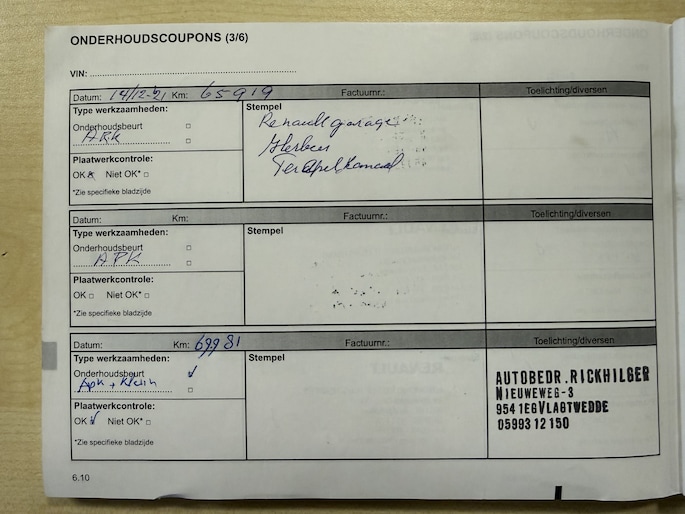 ONDERHOUDSCOUPONS (3/6)
VIN:
Datum: 14/12-21 Km: 65919 Factuurnr.: Toelichting/diversen
Type werkzaamheden:
Stempel
Onderhoudsbeurt
APK
Renault garage
Herbers
Ter Apelkanaal
Plaatwerkcontrole:
OK Niet OK*
*Zie specifieke bladzijde
Datum: Km: Factuurnr.: Toelichting/diversen
Type werkzaamheden:
Stempel
Onderhoudsbeurt
APK
Plaatwerkcontrole:
OK Niet OK*
*Zie specifieke bladzijde
Datum: Km: 69981 Factuurnr.: Toelichting/diversen
Type werkzaamheden:
Stempel
Onderhoudsbeurt
Apk + Klein
Plaatwerkcontrole:
OK Niet OK*
*Zie specifieke bladzijde
AUTOBEDR. RICKHILGER
NIEUWEWEG-3
9541EGVLAGTWEDDE
0599312150
6.10